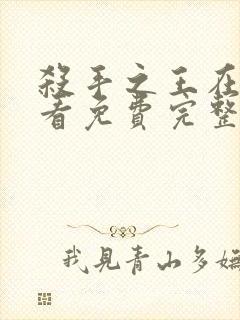 殺手之王在
看免費完整
我見青山多嫵